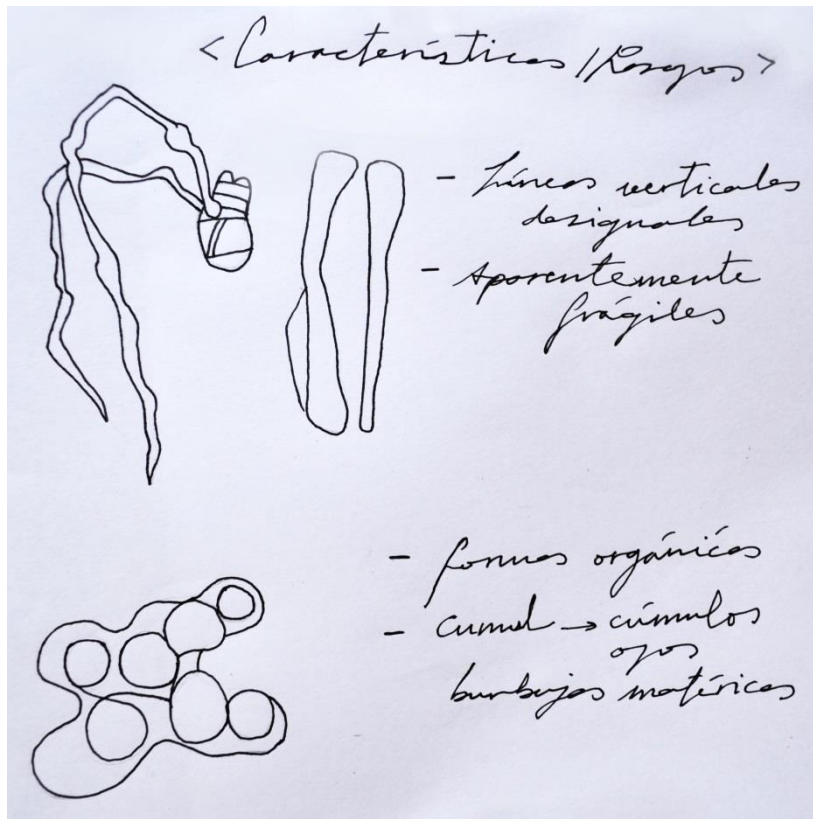 <Características / Rasgos>
- Líneas verticales
desiguales
- Aparentemente
frágiles
- formas orgánicas
- cumul → cúmulos
ojos
burbujas matéricas